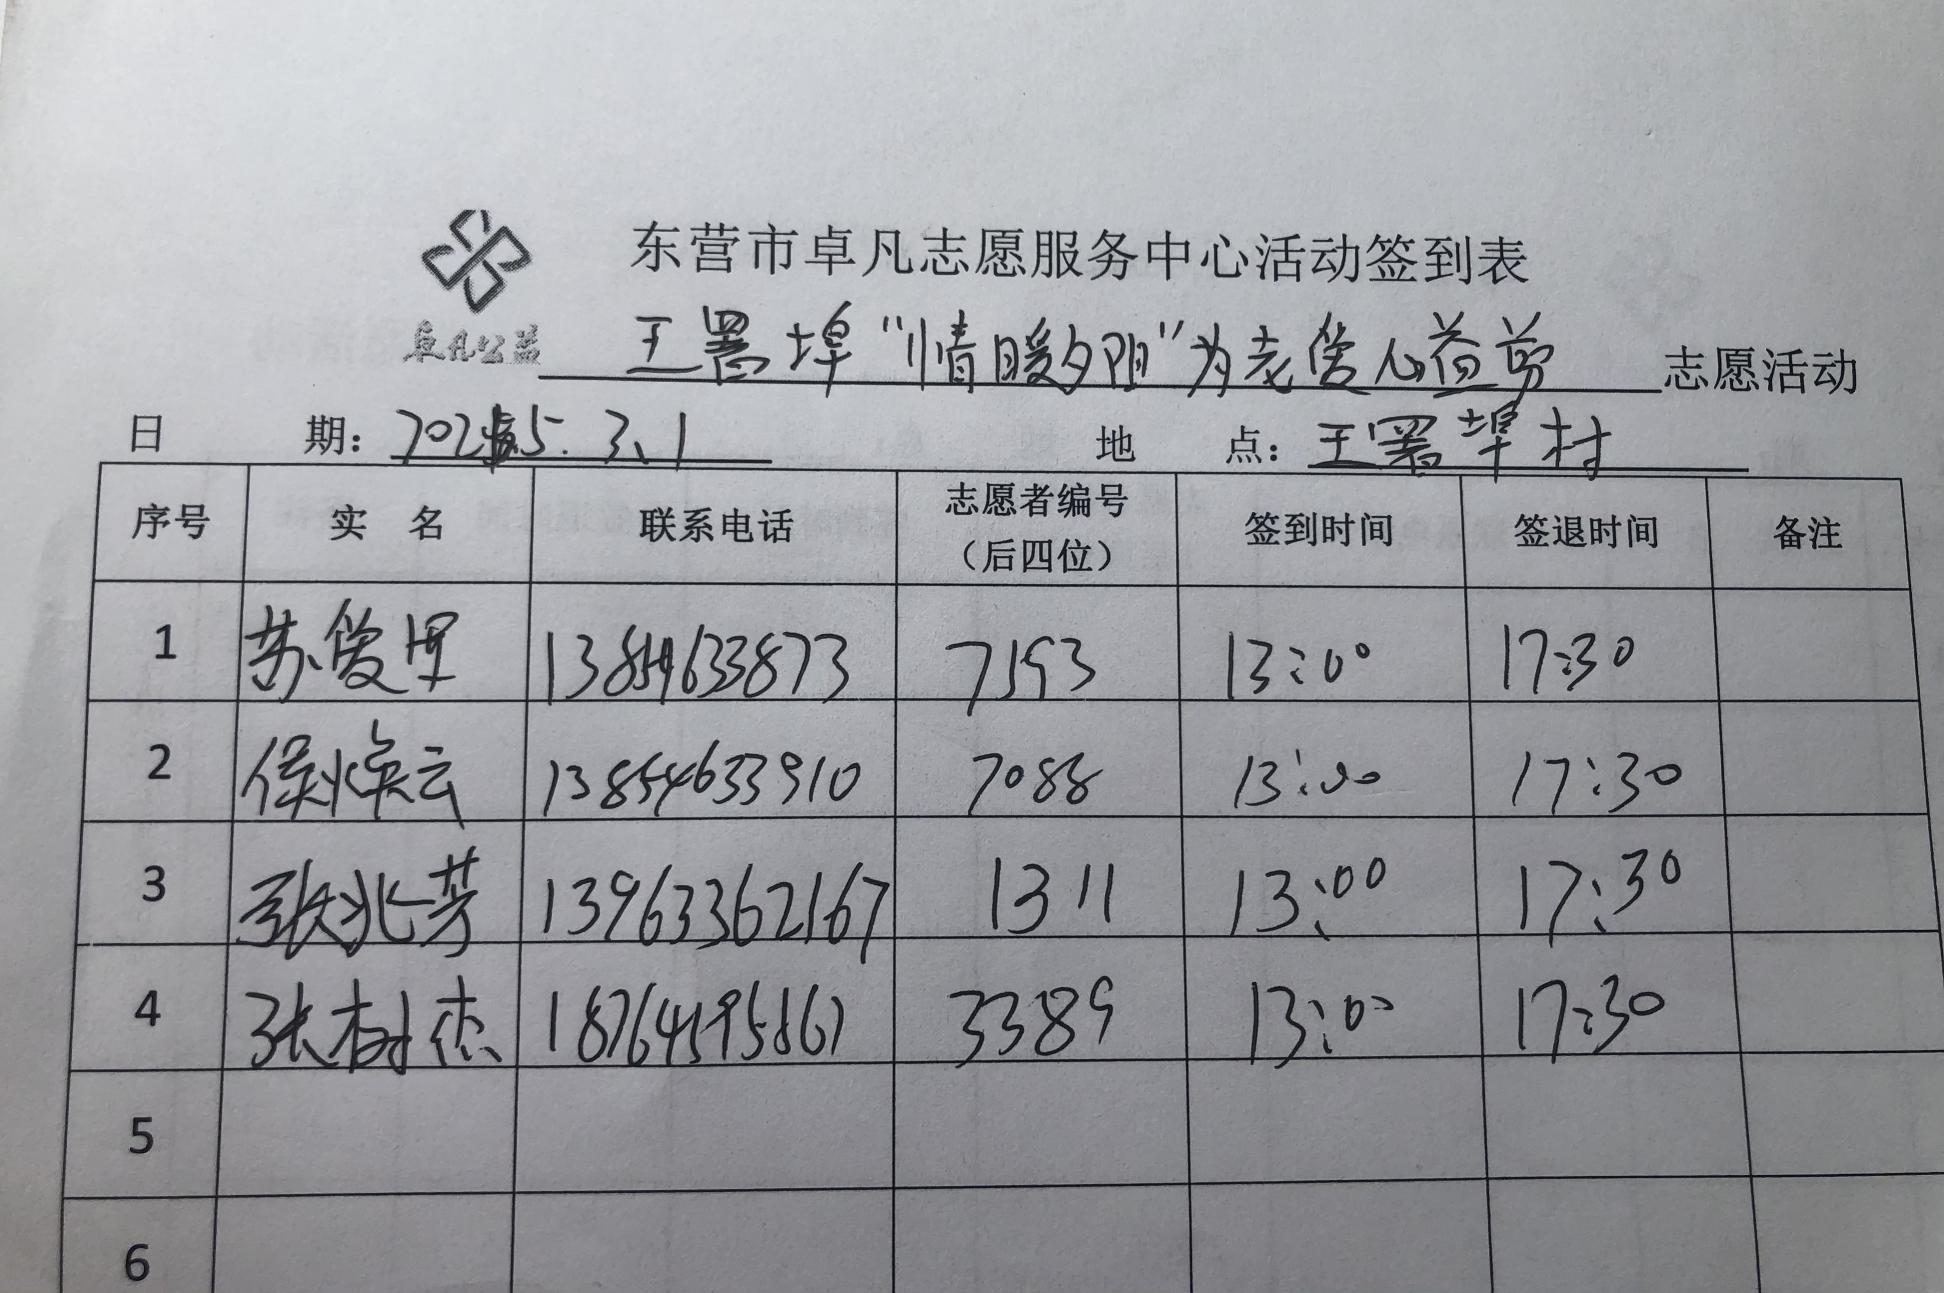 东营市卓凡志愿服务中心活动签到表
卓凡公益
王署埠"情暖夕阳"为老俊人益剪 志愿活动
日 期: 2025.3.1 地 点: 王署埠村
序号 实 名 联系电话 志愿者编号（后四位） 签到时间 签退时间 备注
1 苏俊里 13854633873 7193 13:00 17:30
2 侯焕云 13854633910 7088 13:00 17:30
3 张兆芳 13963362167 1311 13:00 17:30
4 张树杰 3389 13:00 17:30
5
6